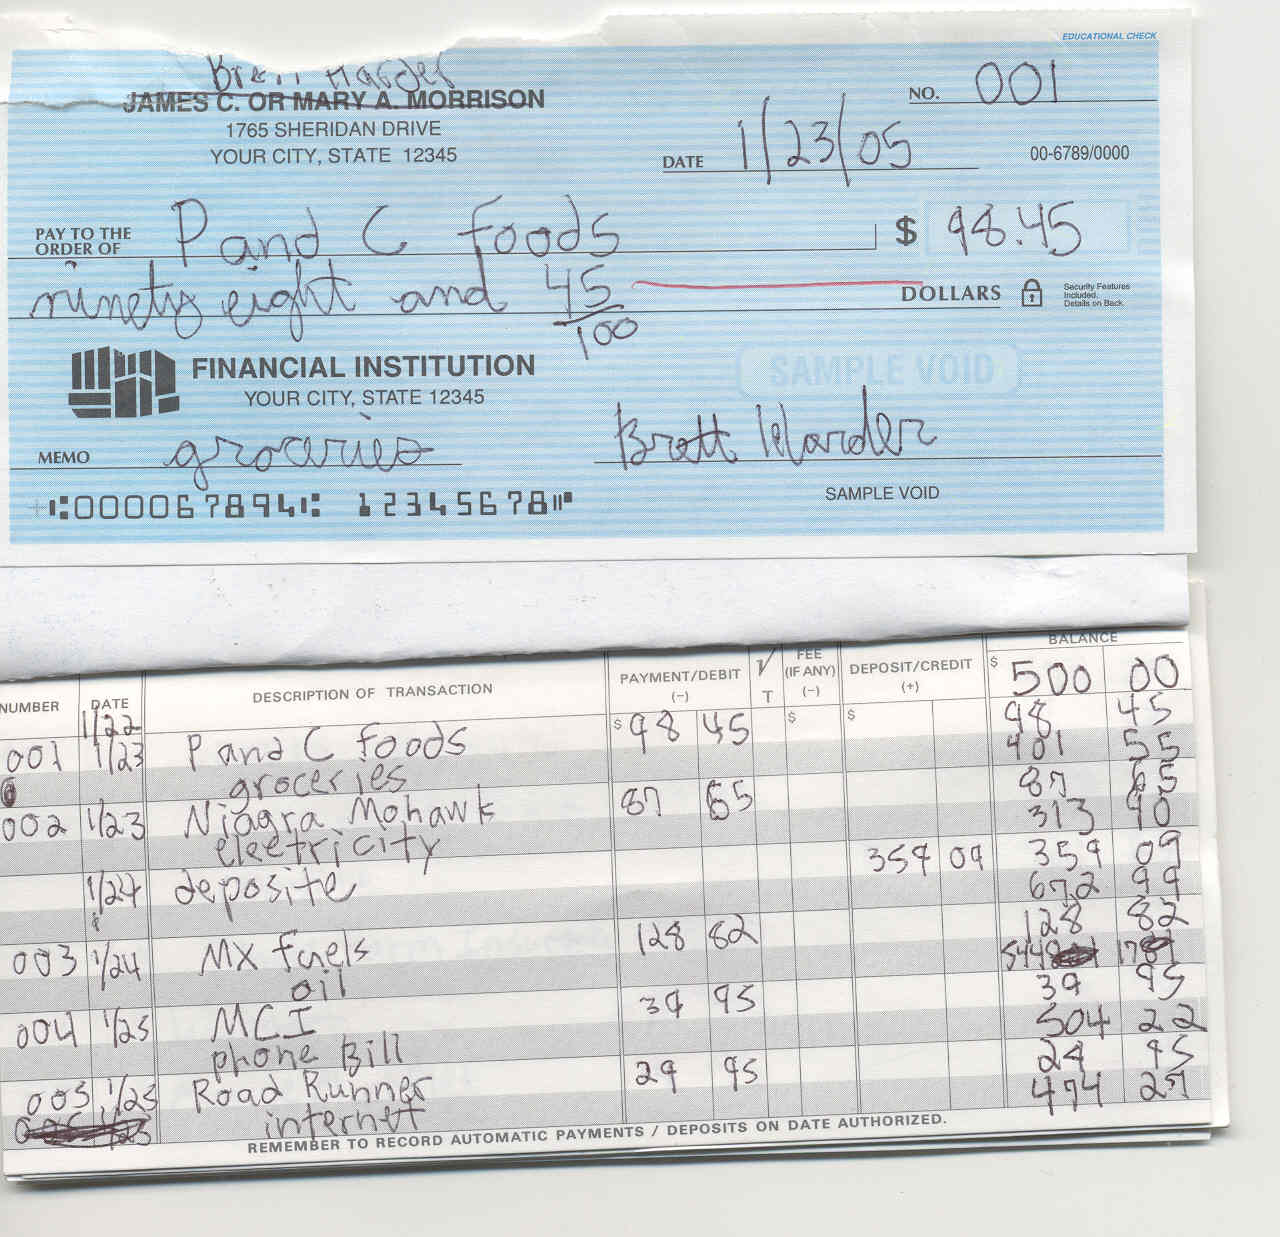 EDUCATIONAL CHECK
Brett Harder
JAMES C. OR MARY A. MORRISON
NO. 001
1765 SHERIDAN DRIVE
YOUR CITY, STATE 12345
DATE 1/23/05
00-6789/0000
PAY TO THE
ORDER OF P and C foods $ 98.45
ninety eight and 45/100 DOLLARS
Security Features
Included.
Details on Back.
FINANCIAL INSTITUTION
SAMPLE VOID
YOUR CITY, STATE 12345
MEMO groceries Brett Harder
SAMPLE VOID
⑆000067894⑆ 12345678⑈
NUMBER DATE DESCRIPTION OF TRANSACTION PAYMENT/DEBIT (−) √ T FEE (IF ANY) (−) DEPOSIT/CREDIT (+) BALANCE
$ 500 00
1/22
001 1/23 P and C foods $ 98 45 $ $ 98 45
groceries 401 55
002 1/23 Niagra Mohawk 87 65 87 65
electricity 313 90
1/24 deposite 359 09 359 09
672 99
003 1/24 MX fuels 128 82 128 82
oil 544 17
004 1/25 MCI 39 95 39 95
phone Bill 504 22
005 1/25 Road Runner 29 95 29 95
internet 474 27
REMEMBER TO RECORD AUTOMATIC PAYMENTS / DEPOSITS ON DATE AUTHORIZED.